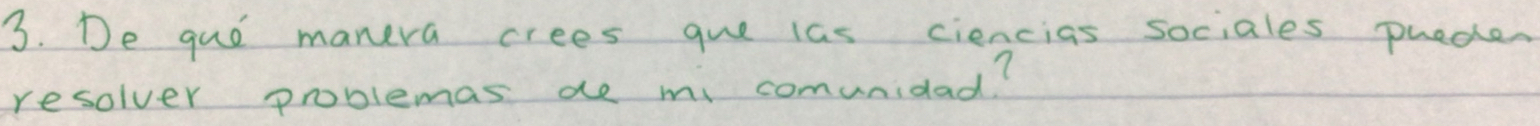 3. De qué manera crees que las ciencias sociales pueden
resolver problemas de mi comunidad.?